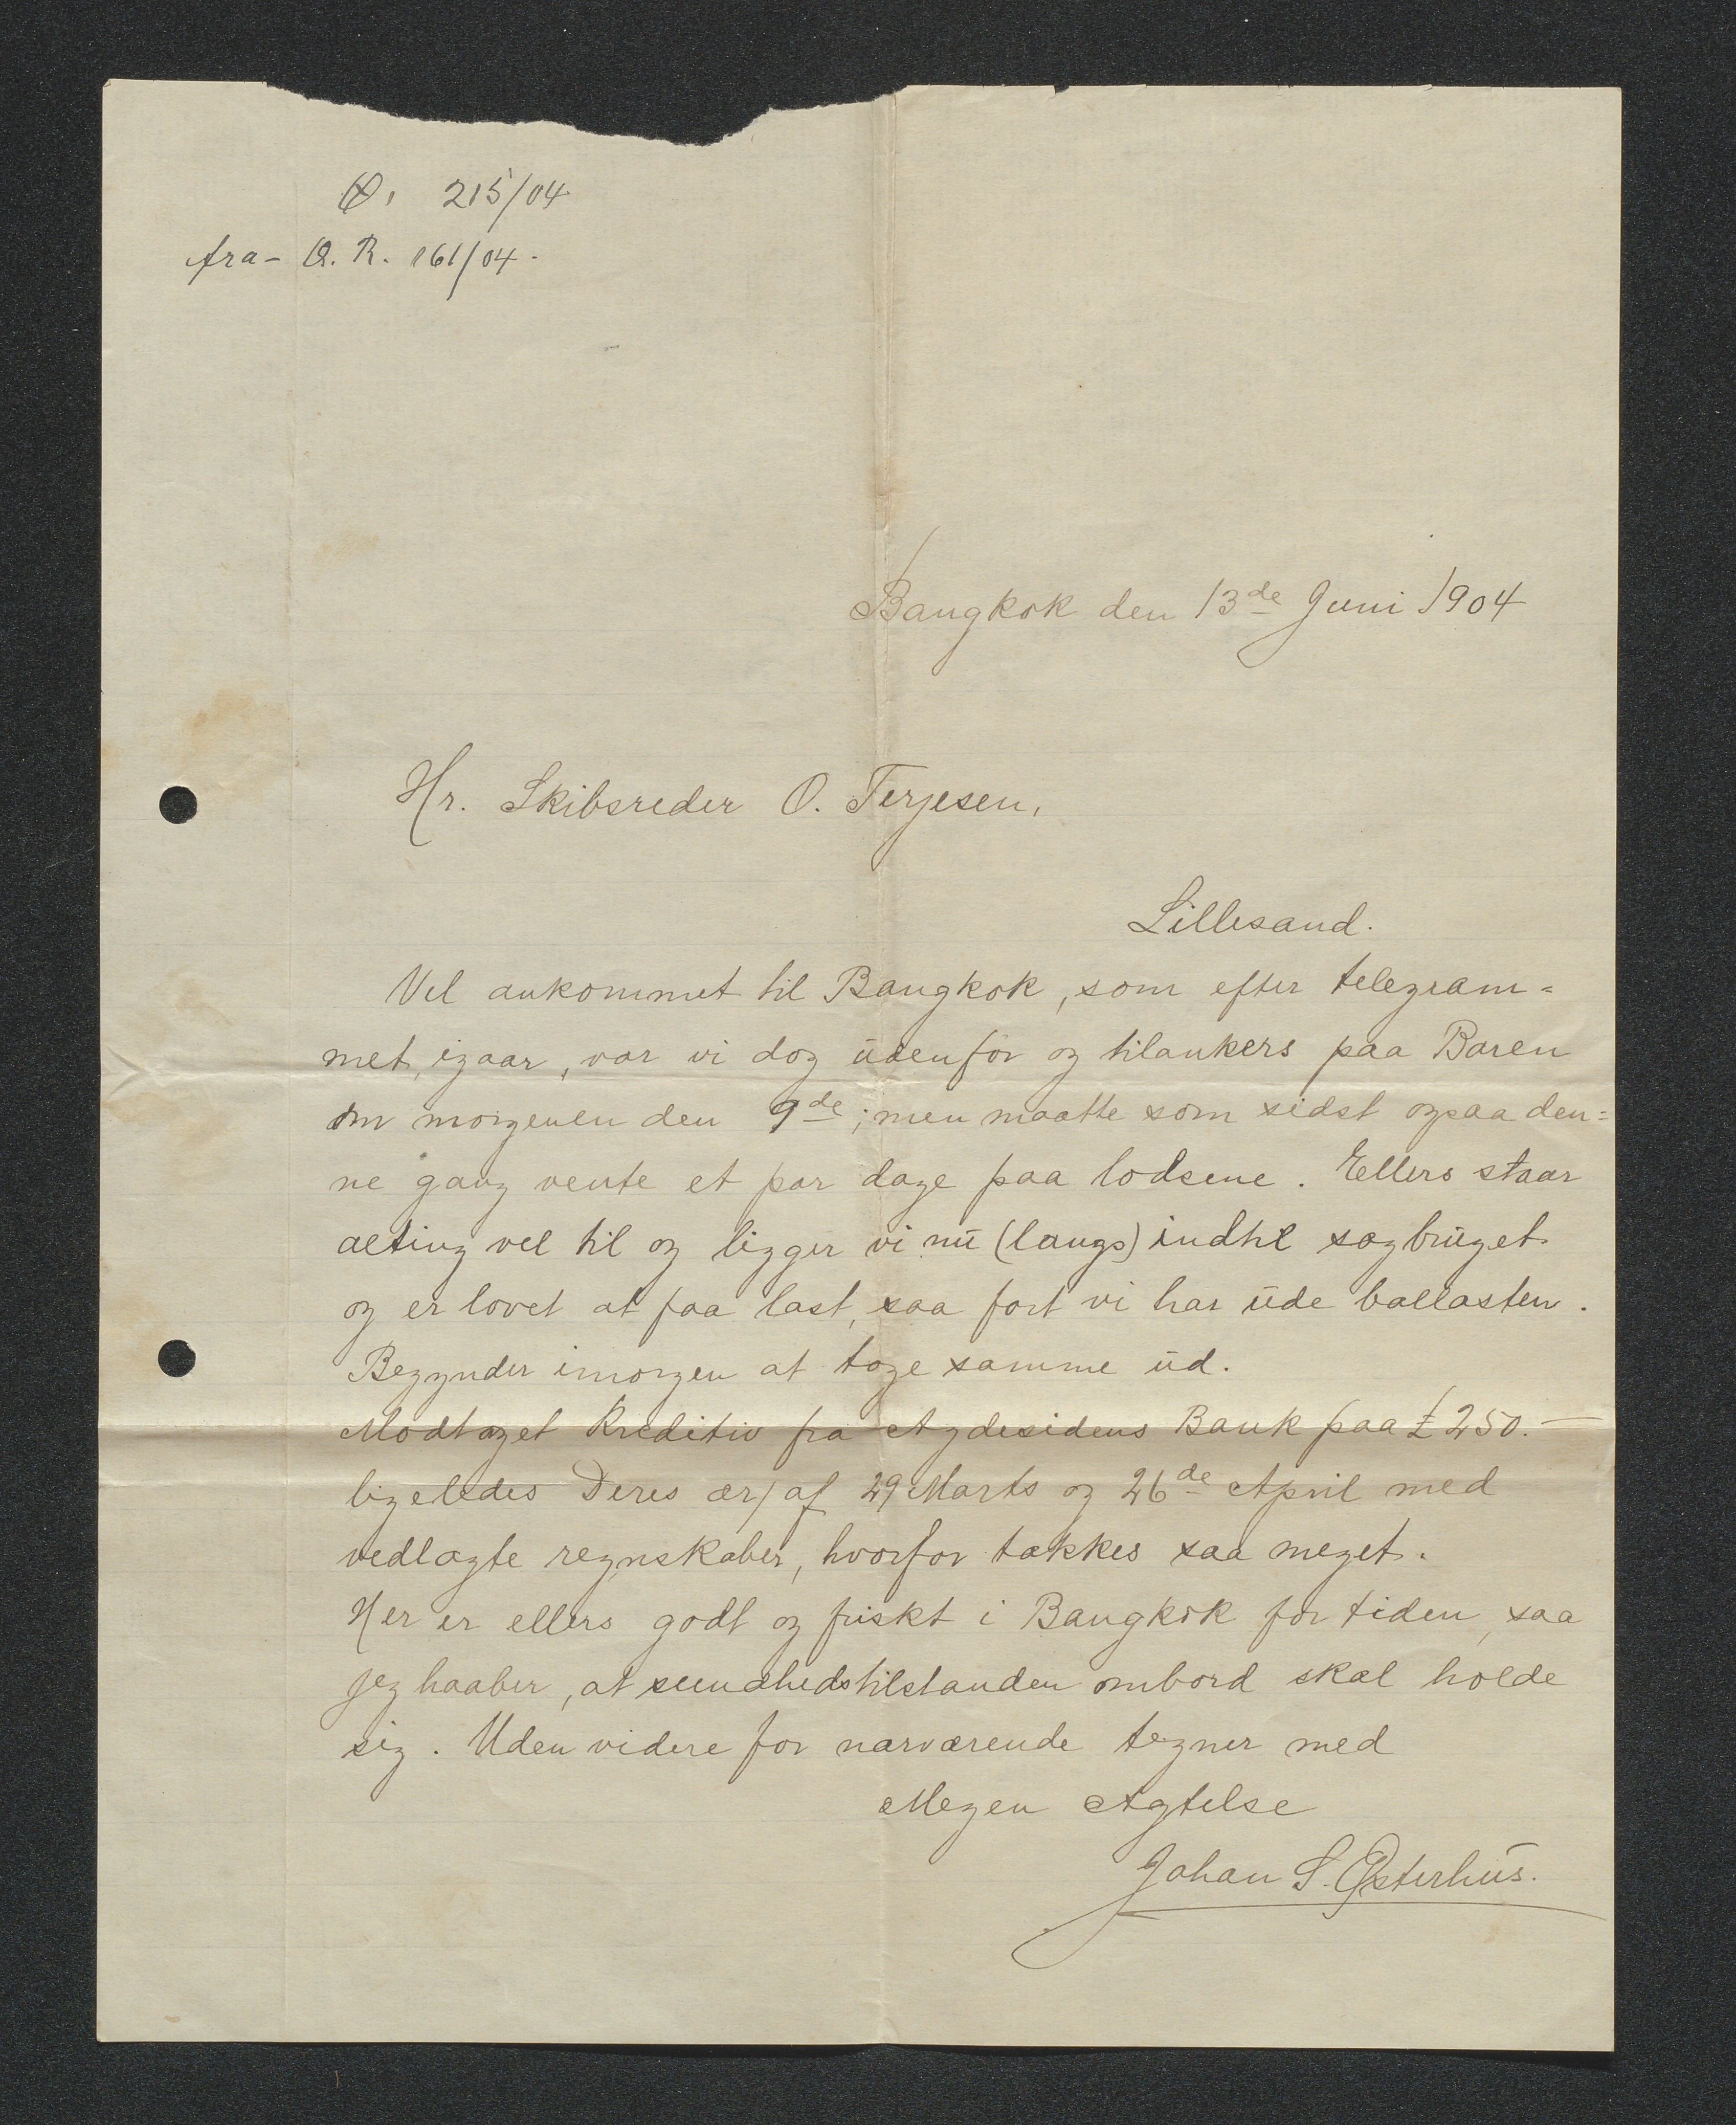 215/04
fra - Q. R. 161/04.
Bangkok den 13de Juni 1904
Hr. Skibsreder O. Terjesen,
Lillesand.
Vel ankommet til Bangkok, som efter telegram=
met, igaar, var vi dog udenfor og tilankers paa Baren
om morgenen den 9de; men maatte som sidst ogsaa den=
ne gang vente et par dage paa lodsene. Ellers staar
alting vel til og ligger vi nu (langs) indtil sagbruget
og er lovet at faa last, saa fort vi har ude ballasten.
Begynder imorgen at tage samme ud.
Modtaget Kreditiv fra Agdesidens Bank paa £ 250.—
ligeledes Deres ær/ af 29 Marts og 26de April med
vedlagte regnskaber, hvorfor takkes saa meget.
Her er ellers godt og friskt i Bangkok for tiden, saa
jeg haaber, at sundhedstilstanden ombord skal holde
sig. Uden videre for nærværende tegner med
Megen Agtelse
Johan S. Østerhus.